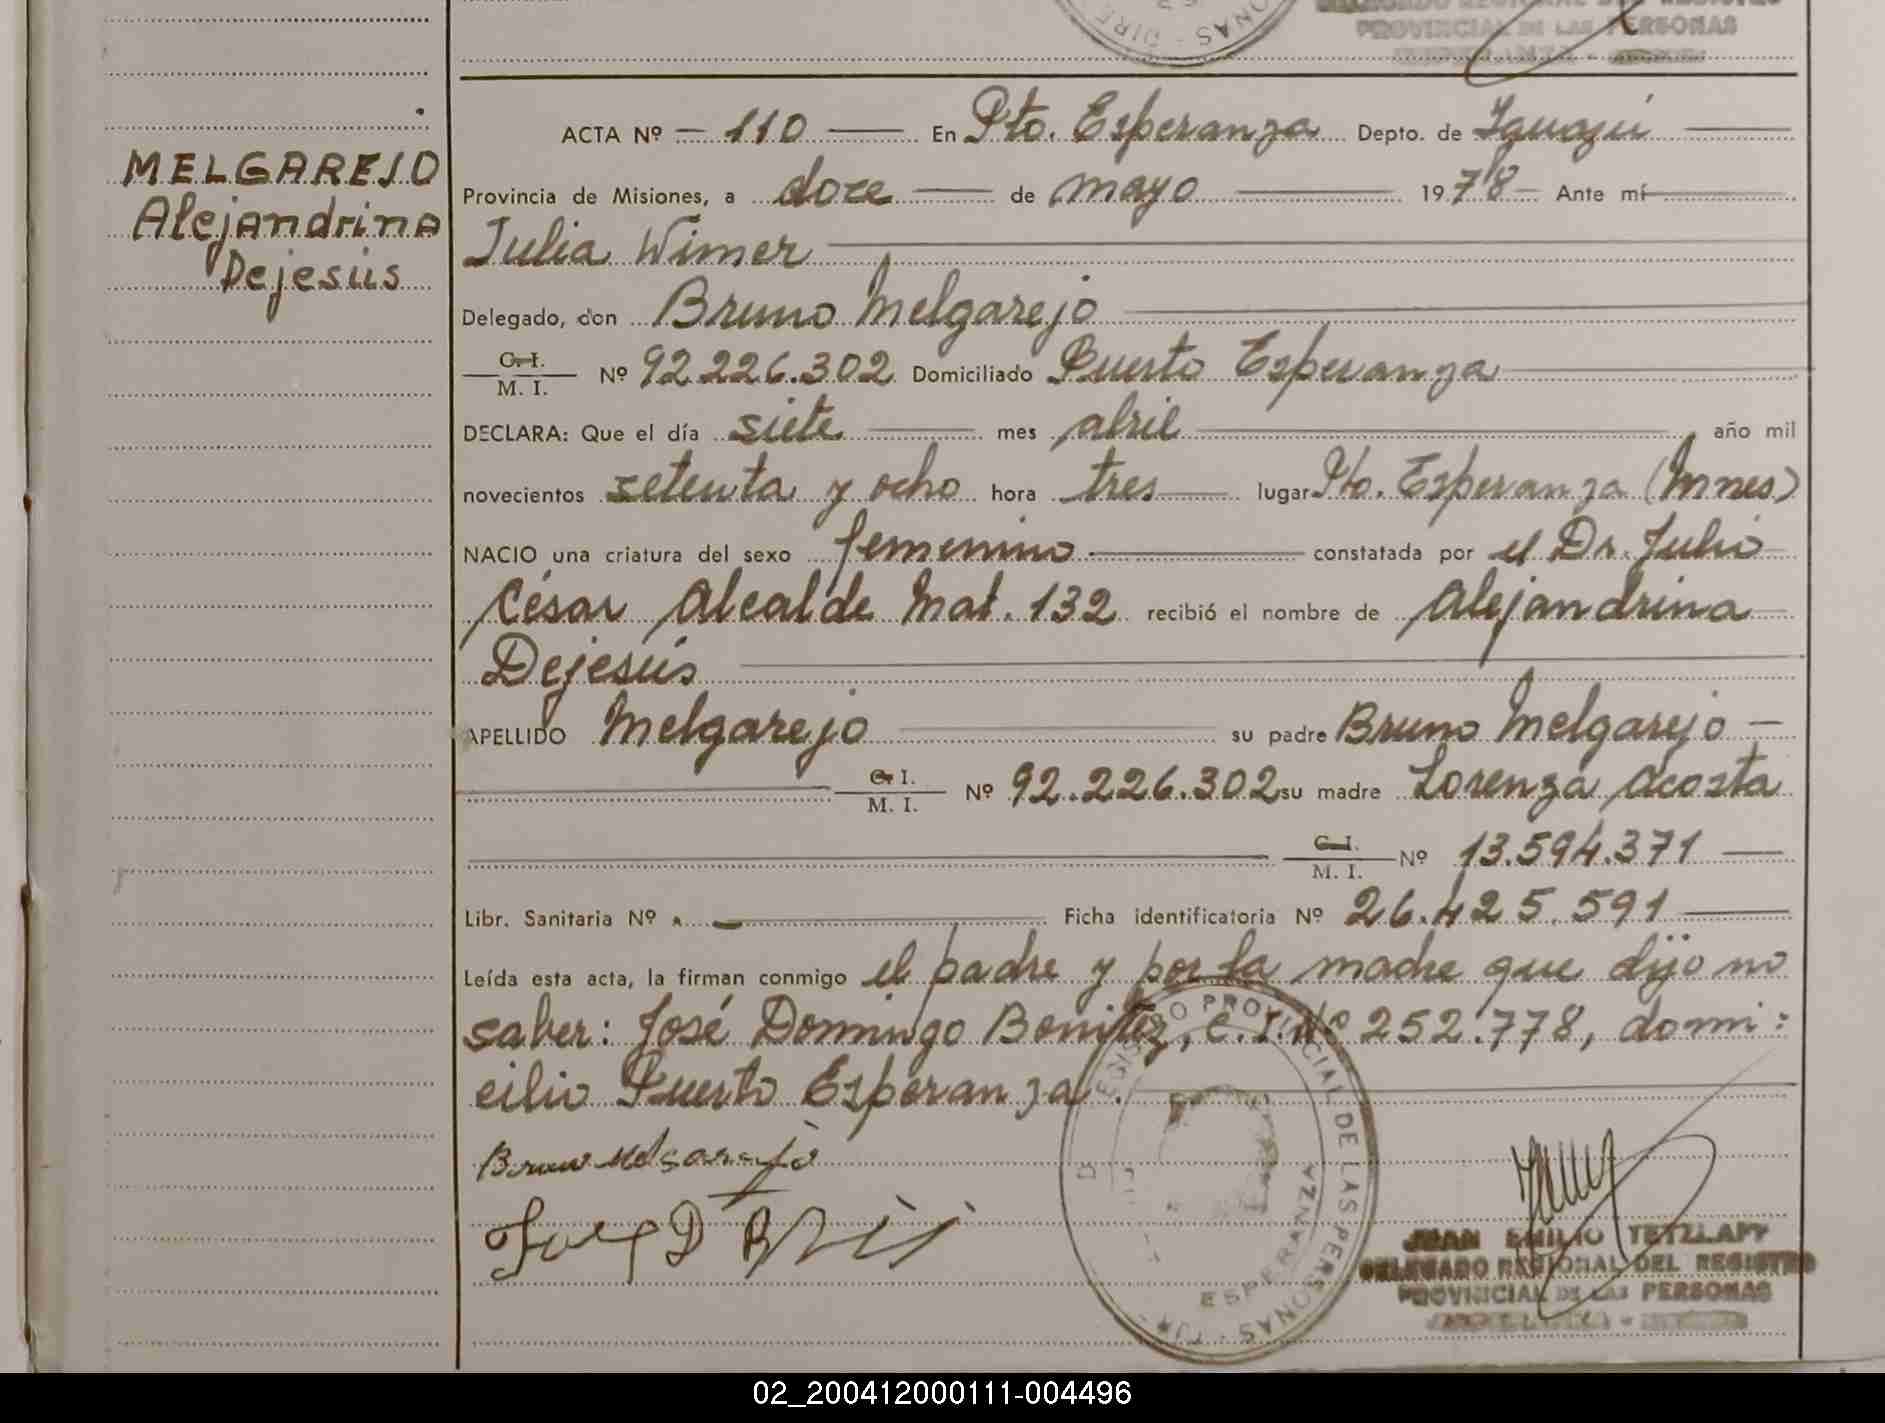 PROVINCIAL DE LAS PERSONAS
MELGAREJO
Alejandrina
Dejesús
ACTA Nº - 110 — En Pto. Esperanza Depto. de Iguazú
Provincia de Misiones, a doce de mayo 1978 Ante mí
Julia Wimer
Delegado, don Bruno Melgarejo
C. I. / M. I. Nº 92.226.302 Domiciliado Puerto Esperanza
DECLARA: Que el día siete mes abril año mil
novecientos setenta y ocho hora tres lugar Pto. Esperanza (Mnes)
NACIO una criatura del sexo femenino constatada por el Dr. Julio
César Alcalde Mat. 132 recibió el nombre de Alejandrina
Dejesús
APELLIDO Melgarejo su padre Bruno Melgarejo
C. I. / M. I. Nº 92.226.302 su madre Lorenza Acosta
C. I. / M. I. Nº 13.594.371
Libr. Sanitaria Nº - Ficha identificatoria Nº 26.425.591
Leída esta acta, la firman conmigo el padre y por la madre que dijo no
saber: José Domingo Benitez, C.I. Nº 252.778, domi-
cilio Puerto Esperanza.
Bruno Melgarejo
REGISTRO PROVINCIAL DE LAS PERSONAS
ESPERANZA
JUAN EMILIO TETZLAFF
DELEGADO REGIONAL DEL REGISTRO
PROVINCIAL DE LAS PERSONAS
02_200412000111-004496